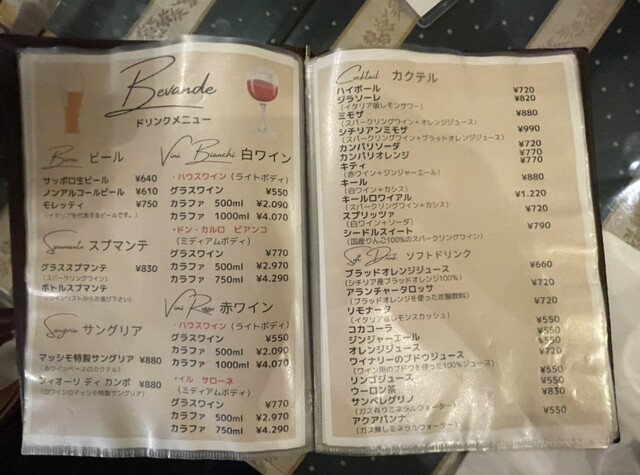 Bevande
ドリンクメニュー
Birra ビール
サッポロ生ビール ¥640
ノンアルコールビール ¥610
モレッティ ¥750
(イタリアを代表するビールです。)
Spumante スプマンテ
グラススプマンテ ¥830
(スパークリングワイン)
ボトルスプマンテ
(ワインリストからお選び下さい)
Sangria サングリア
マッシモ特製サングリア ¥880
(赤ワインベースのカクテル)
フィオーリ ディ カンポ ¥880
(白ワインのマッシモ特製サングリア)
Vini Bianchi 白ワイン
・ハウスワイン (ライトボディ)
グラスワイン ¥550
カラファ 500ml ¥2.090
カラファ 1000ml ¥4.070
・ドン・カルロ ビアンコ
(ミディアムボディ)
グラスワイン ¥770
カラファ 500ml ¥2.970
カラファ 750ml ¥4.290
Vini Rosso 赤ワイン
・ハウスワイン (ライトボディ)
グラスワイン ¥550
カラファ 500ml ¥2.090
カラファ 1000ml ¥4.070
・イル サローネ
(ミディアムボディ)
グラスワイン ¥770
カラファ 500ml ¥2.970
カラファ 750ml ¥4.290
Cocktail カクテル
ハイボール ¥720
ジラソーレ ¥820
(イタリア版レモンサワー)
ミモザ ¥880
(スパークリングワイン+オレンジジュース)
シチリアンミモザ ¥990
(スパークリングワイン+ブラッドオレンジジュース)
カンパリソーダ ¥720
カンパリオレンジ ¥770
キティ ¥770
(赤ワイン+ジンジャーエール)
キール ¥880
(白ワイン+カシス)
キールロワイアル ¥1.220
(スパークリングワイン+カシス)
スプリッツァ ¥720
(白ワイン+ソーダ)
シードルスイート ¥790
(国産りんご100%のスパークリングワイン)
Soft Drink ソフトドリンク
ブラッドオレンジジュース ¥660
(シチリア産ブラッドオレンジ100%)
アランチャータロッサ ¥720
(ブラッドオレンジを使った炭酸飲料)
リモナータ ¥720
(イタリア版レモンスカッシュ)
コカコーラ ¥550
ジンジャーエール ¥550
オレンジジュース ¥550
ワイナリーのブドウジュース ¥720
(ワイン用のブドウを使った100%ジュース)
リンゴジュース ¥550
ウーロン茶 ¥550
サンペレグリノ ¥830
(ガス有りミネラルウォーター)
アクアパンナ ¥550
(ガス無しミネラルウォーター)